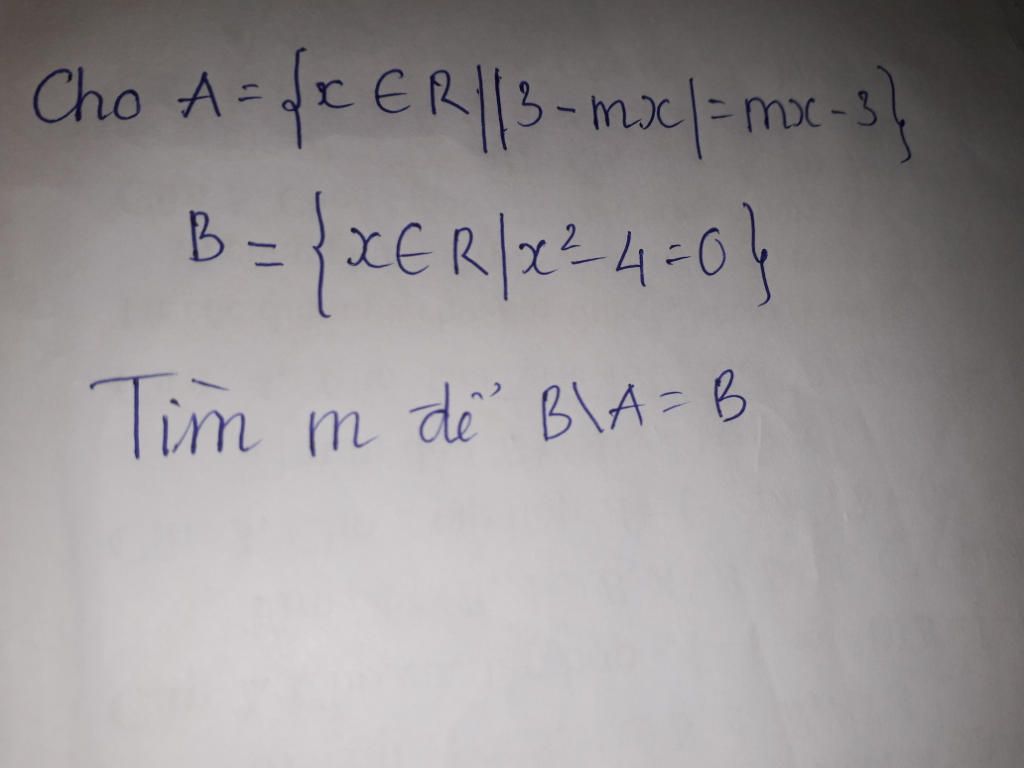 Cho A = {x ∈ R||3 - mx| = mx - 3}
B = {x ∈ R|x² - 4 = 0}
Tìm m để B\A = B